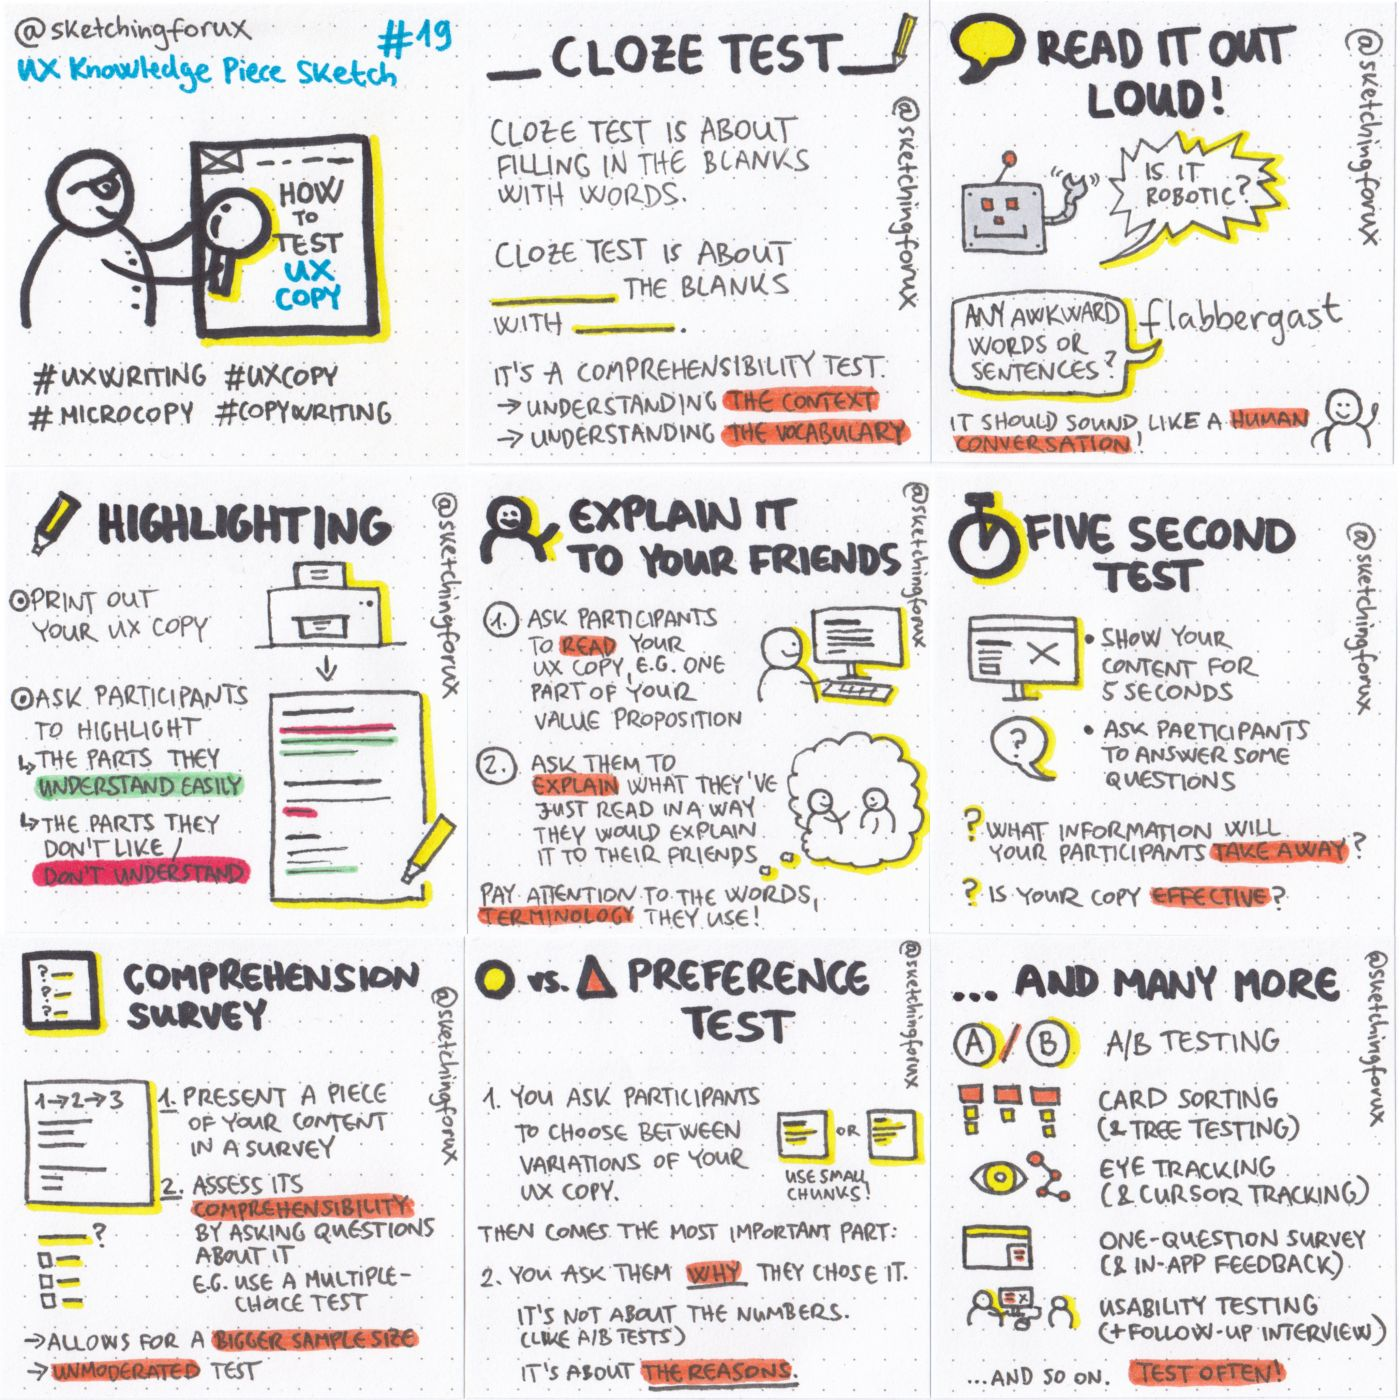 @sketchingforux
#19
UX Knowledge Piece Sketch
HOW
TO
TEST
UX
COPY
#UXWRITING #UXCOPY
#MICROCOPY #COPYWRITING
CLOZE TEST
@sketchingforux
CLOZE TEST IS ABOUT
FILLING IN THE BLANKS
WITH WORDS.
CLOZE TEST IS ABOUT
______ THE BLANKS
WITH ______.
IT'S A COMPREHENSIBILITY TEST.
→ UNDERSTANDING THE CONTEXT
→ UNDERSTANDING THE VOCABULARY
READ IT OUT
LOUD!
@sketchingforux
IS IT
ROBOTIC?
ANY AWKWARD
WORDS OR
SENTENCES?
flabbergast
IT SHOULD SOUND LIKE A HUMAN
CONVERSATION!
HIGHLIGHTING
@sketchingforux
PRINT OUT
YOUR UX COPY
ASK PARTICIPANTS
TO HIGHLIGHT
↳ THE PARTS THEY
UNDERSTAND EASILY
↳ THE PARTS THEY
DON'T LIKE /
DON'T UNDERSTAND
EXPLAIN IT
TO YOUR FRIENDS
@sketchingforux
1. ASK PARTICIPANTS
TO READ YOUR
UX COPY, E.G. ONE
PART OF YOUR
VALUE PROPOSITION
2. ASK THEM TO
EXPLAIN WHAT THEY'VE
JUST READ IN A WAY
THEY WOULD EXPLAIN
IT TO THEIR FRIENDS
PAY ATTENTION TO THE WORDS,
TERMINOLOGY THEY USE!
FIVE SECOND
TEST
@sketchingforux
• SHOW YOUR
CONTENT FOR
5 SECONDS
?
• ASK PARTICIPANTS
TO ANSWER SOME
QUESTIONS
? WHAT INFORMATION WILL
YOUR PARTICIPANTS TAKE AWAY?
? IS YOUR COPY EFFECTIVE?
?
?
?
COMPREHENSION
SURVEY
@sketchingforux
1→2→3
1. PRESENT A PIECE
OF YOUR CONTENT
IN A SURVEY
2. ASSESS ITS
COMPREHENSIBILITY
BY ASKING QUESTIONS
ABOUT IT
E.G. USE A MULTIPLE-
CHOICE TEST
?
→ ALLOWS FOR A BIGGER SAMPLE SIZE
→ UNMODERATED TEST
vs. PREFERENCE
TEST
@sketchingforux
1. YOU ASK PARTICIPANTS
TO CHOOSE BETWEEN
VARIATIONS OF YOUR
UX COPY.
OR
USE SMALL
CHUNKS!
THEN COMES THE MOST IMPORTANT PART:
2. YOU ASK THEM WHY THEY CHOSE IT.
IT'S NOT ABOUT THE NUMBERS.
(LIKE A/B TESTS)
IT'S ABOUT THE REASONS.
... AND MANY MORE
@sketchingforux
A/B A/B TESTING
CARD SORTING
(& TREE TESTING)
EYE TRACKING
(& CURSOR TRACKING)
ONE-QUESTION SURVEY
(& IN-APP FEEDBACK)
USABILITY TESTING
(+ FOLLOW-UP INTERVIEW)
...AND SO ON. TEST OFTEN!